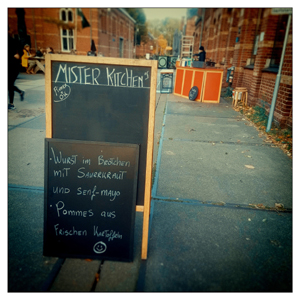 MISTER KITCHEN'S
• WURST IM BRÖTCHEN
MIT SAUERKRAUT
UND SENF-MAYO
• POMMES AUS
FRISCHEN KARTOFFELN